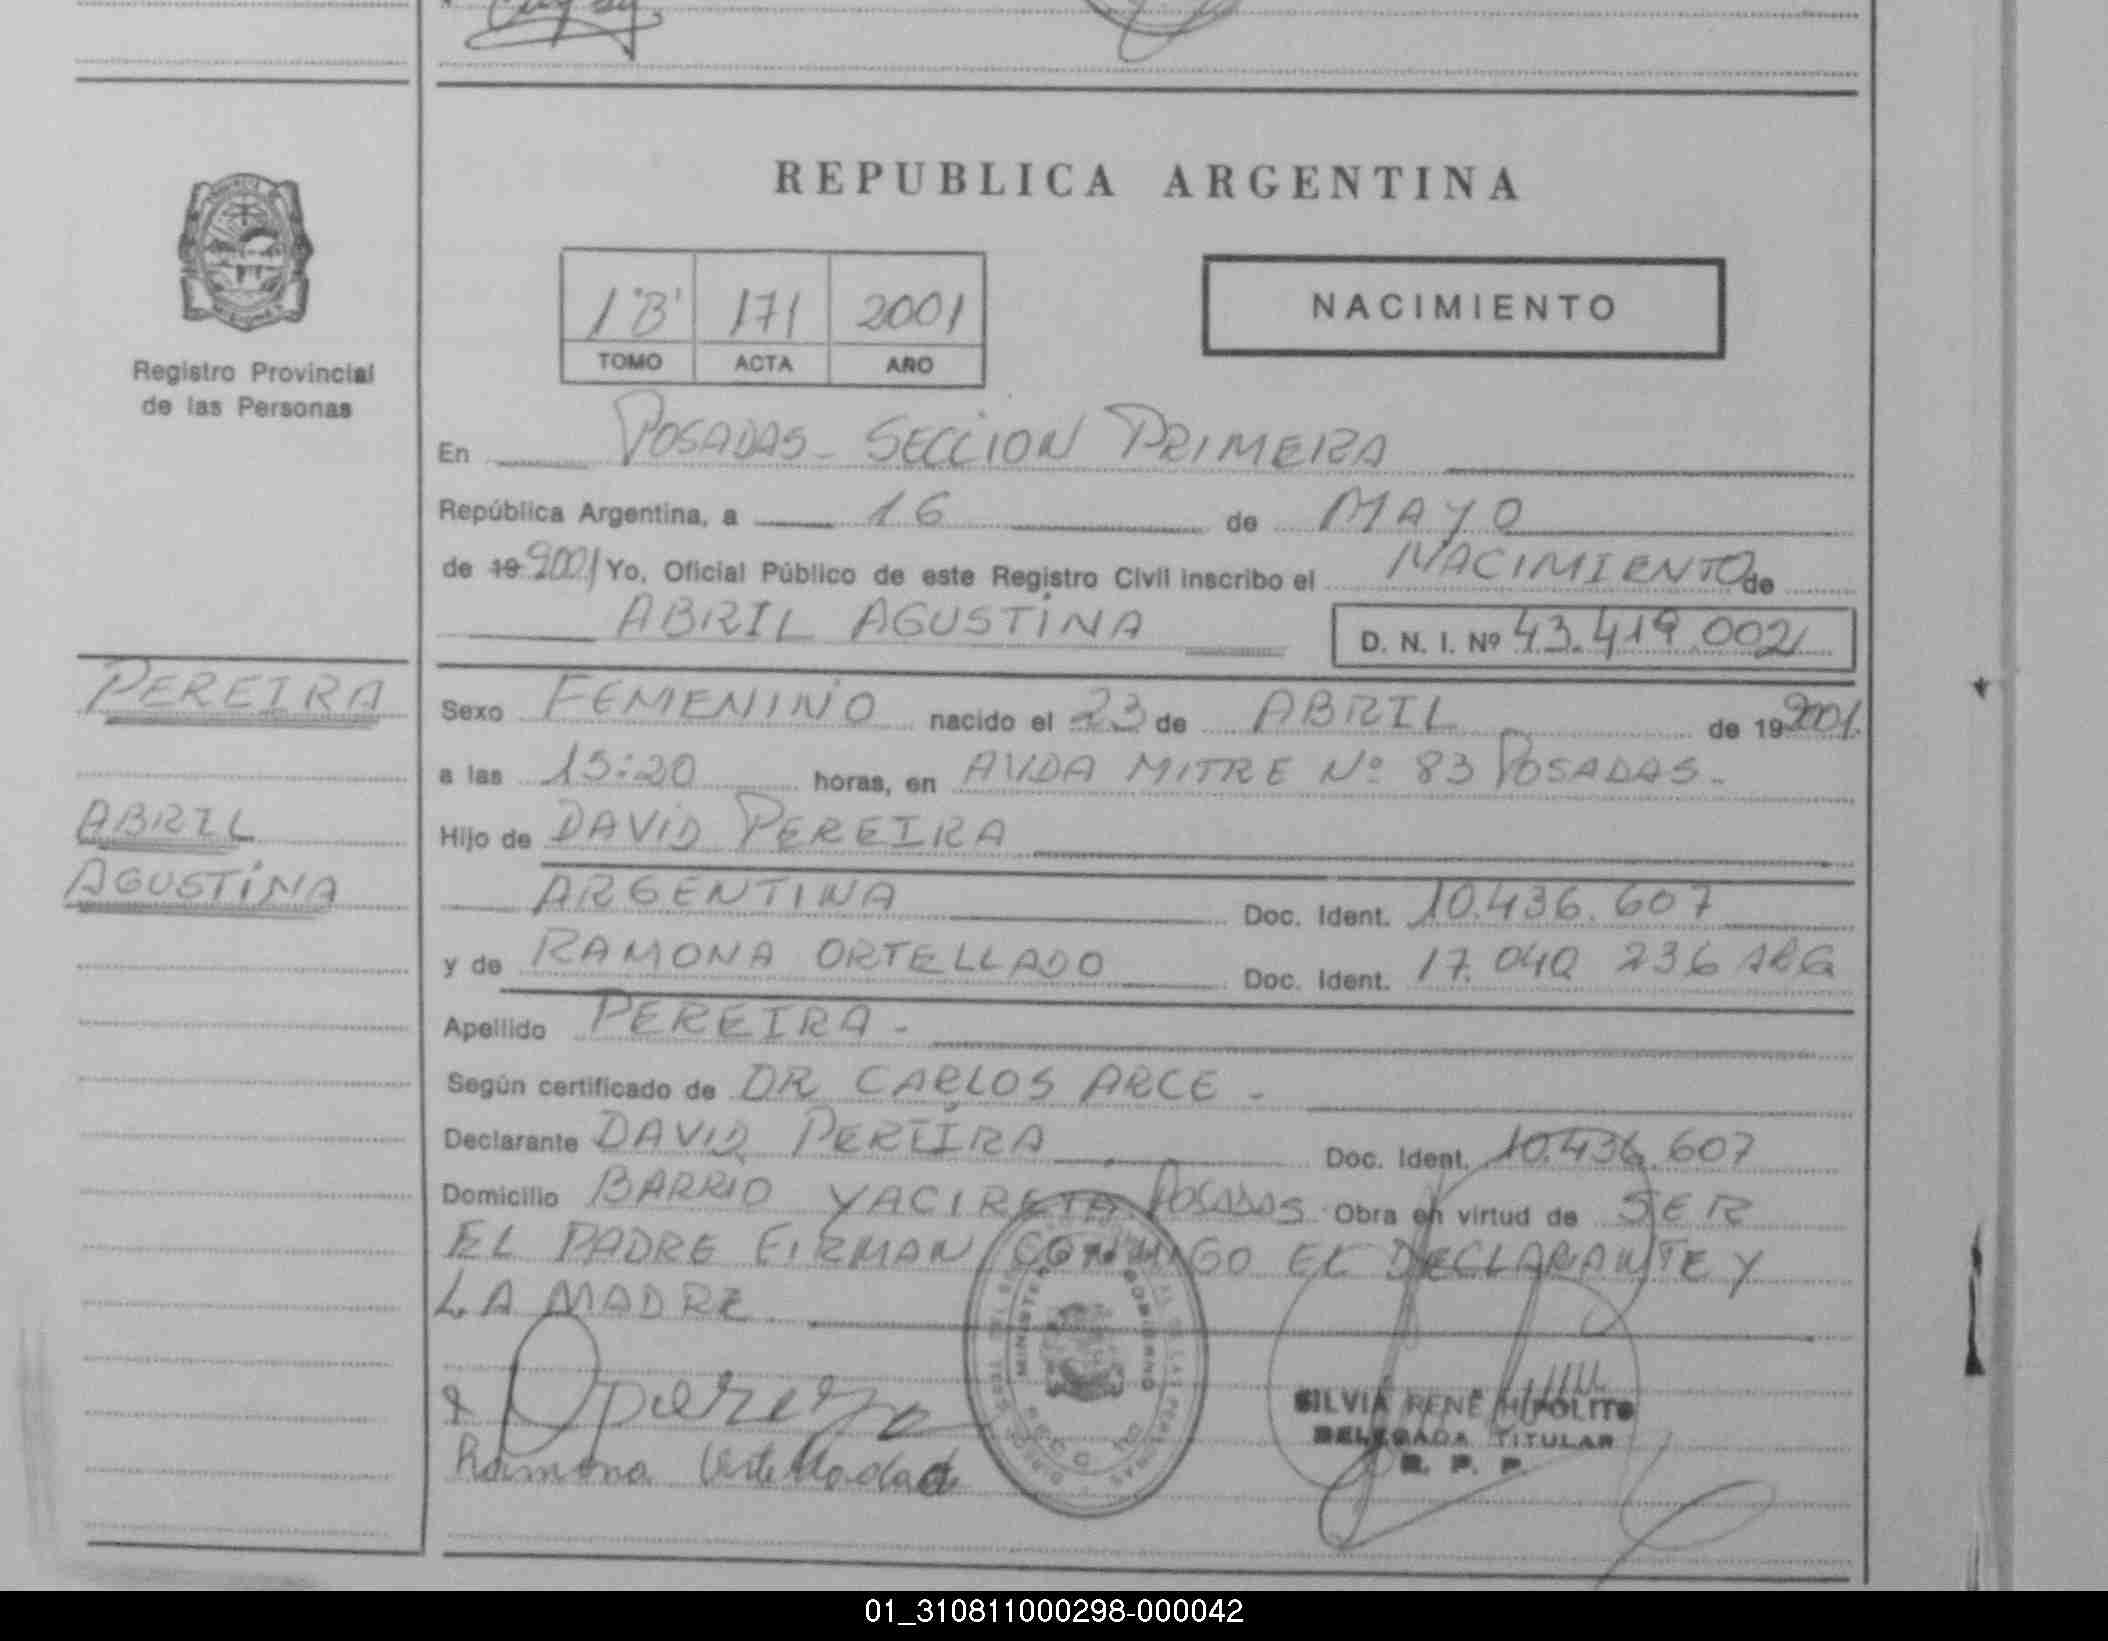 REPUBLICA ARGENTINA
1 "B" 171 2001
TOMO ACTA AÑO
NACIMIENTO
Registro Provincial
de las Personas
En POSADAS - SECCION PRIMERA
República Argentina, a 16 de MAYO
de 19 2001 Yo, Oficial Público de este Registro Civil inscribo el NACIMIENTO de
ABRIL AGUSTINA D. N. I. Nº 43.419.002
PEREIRA
ABRIL
AGUSTINA
Sexo FEMENINO nacido el 23 de ABRIL de 19 2001.
a las 15:20 horas, en AVDA MITRE Nº 83 POSADAS -
Hijo de DAVID PEREIRA
ARGENTINA Doc. Ident. 10.436.607
y de RAMONA ORTELLADO Doc. Ident. 17.040 236 ARG
Apellido PEREIRA -
Según certificado de DR CARLOS ARCE -
Declarante DAVID PEREIRA Doc. Ident. 10.436.607
Domicilio BARRIO YACIRETA POSADAS Obra en virtud de SER
EL PADRE FIRMAN CONMIGO EL DECLARANTE Y
LA MADRE
Ramona Ortellado
SILVIA RENÉ HIPÓLITO
DELEGADA TITULAR
R. P. P.
01_310811000298-000042